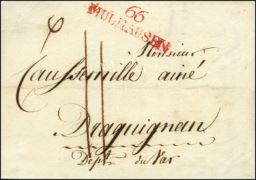 66
MULHAUSEN
Monsieur
Caussemille ainé
Draguignan
Dept du Var